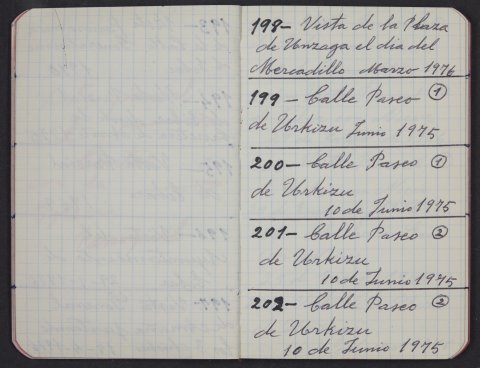 198- Vista de la Plaza
de Unzaga el dia del
Mercadillo Marzo 1976
199- Calle Paseo ①
de Urkizu Junio 1975
200- Calle Paseo ①
de Urkizu
10 de Junio 1975
201- Calle Paseo ②
de Urkizu
10 de Junio 1975
202- Calle Paseo ②
de Urkizu
10 de Junio 1975